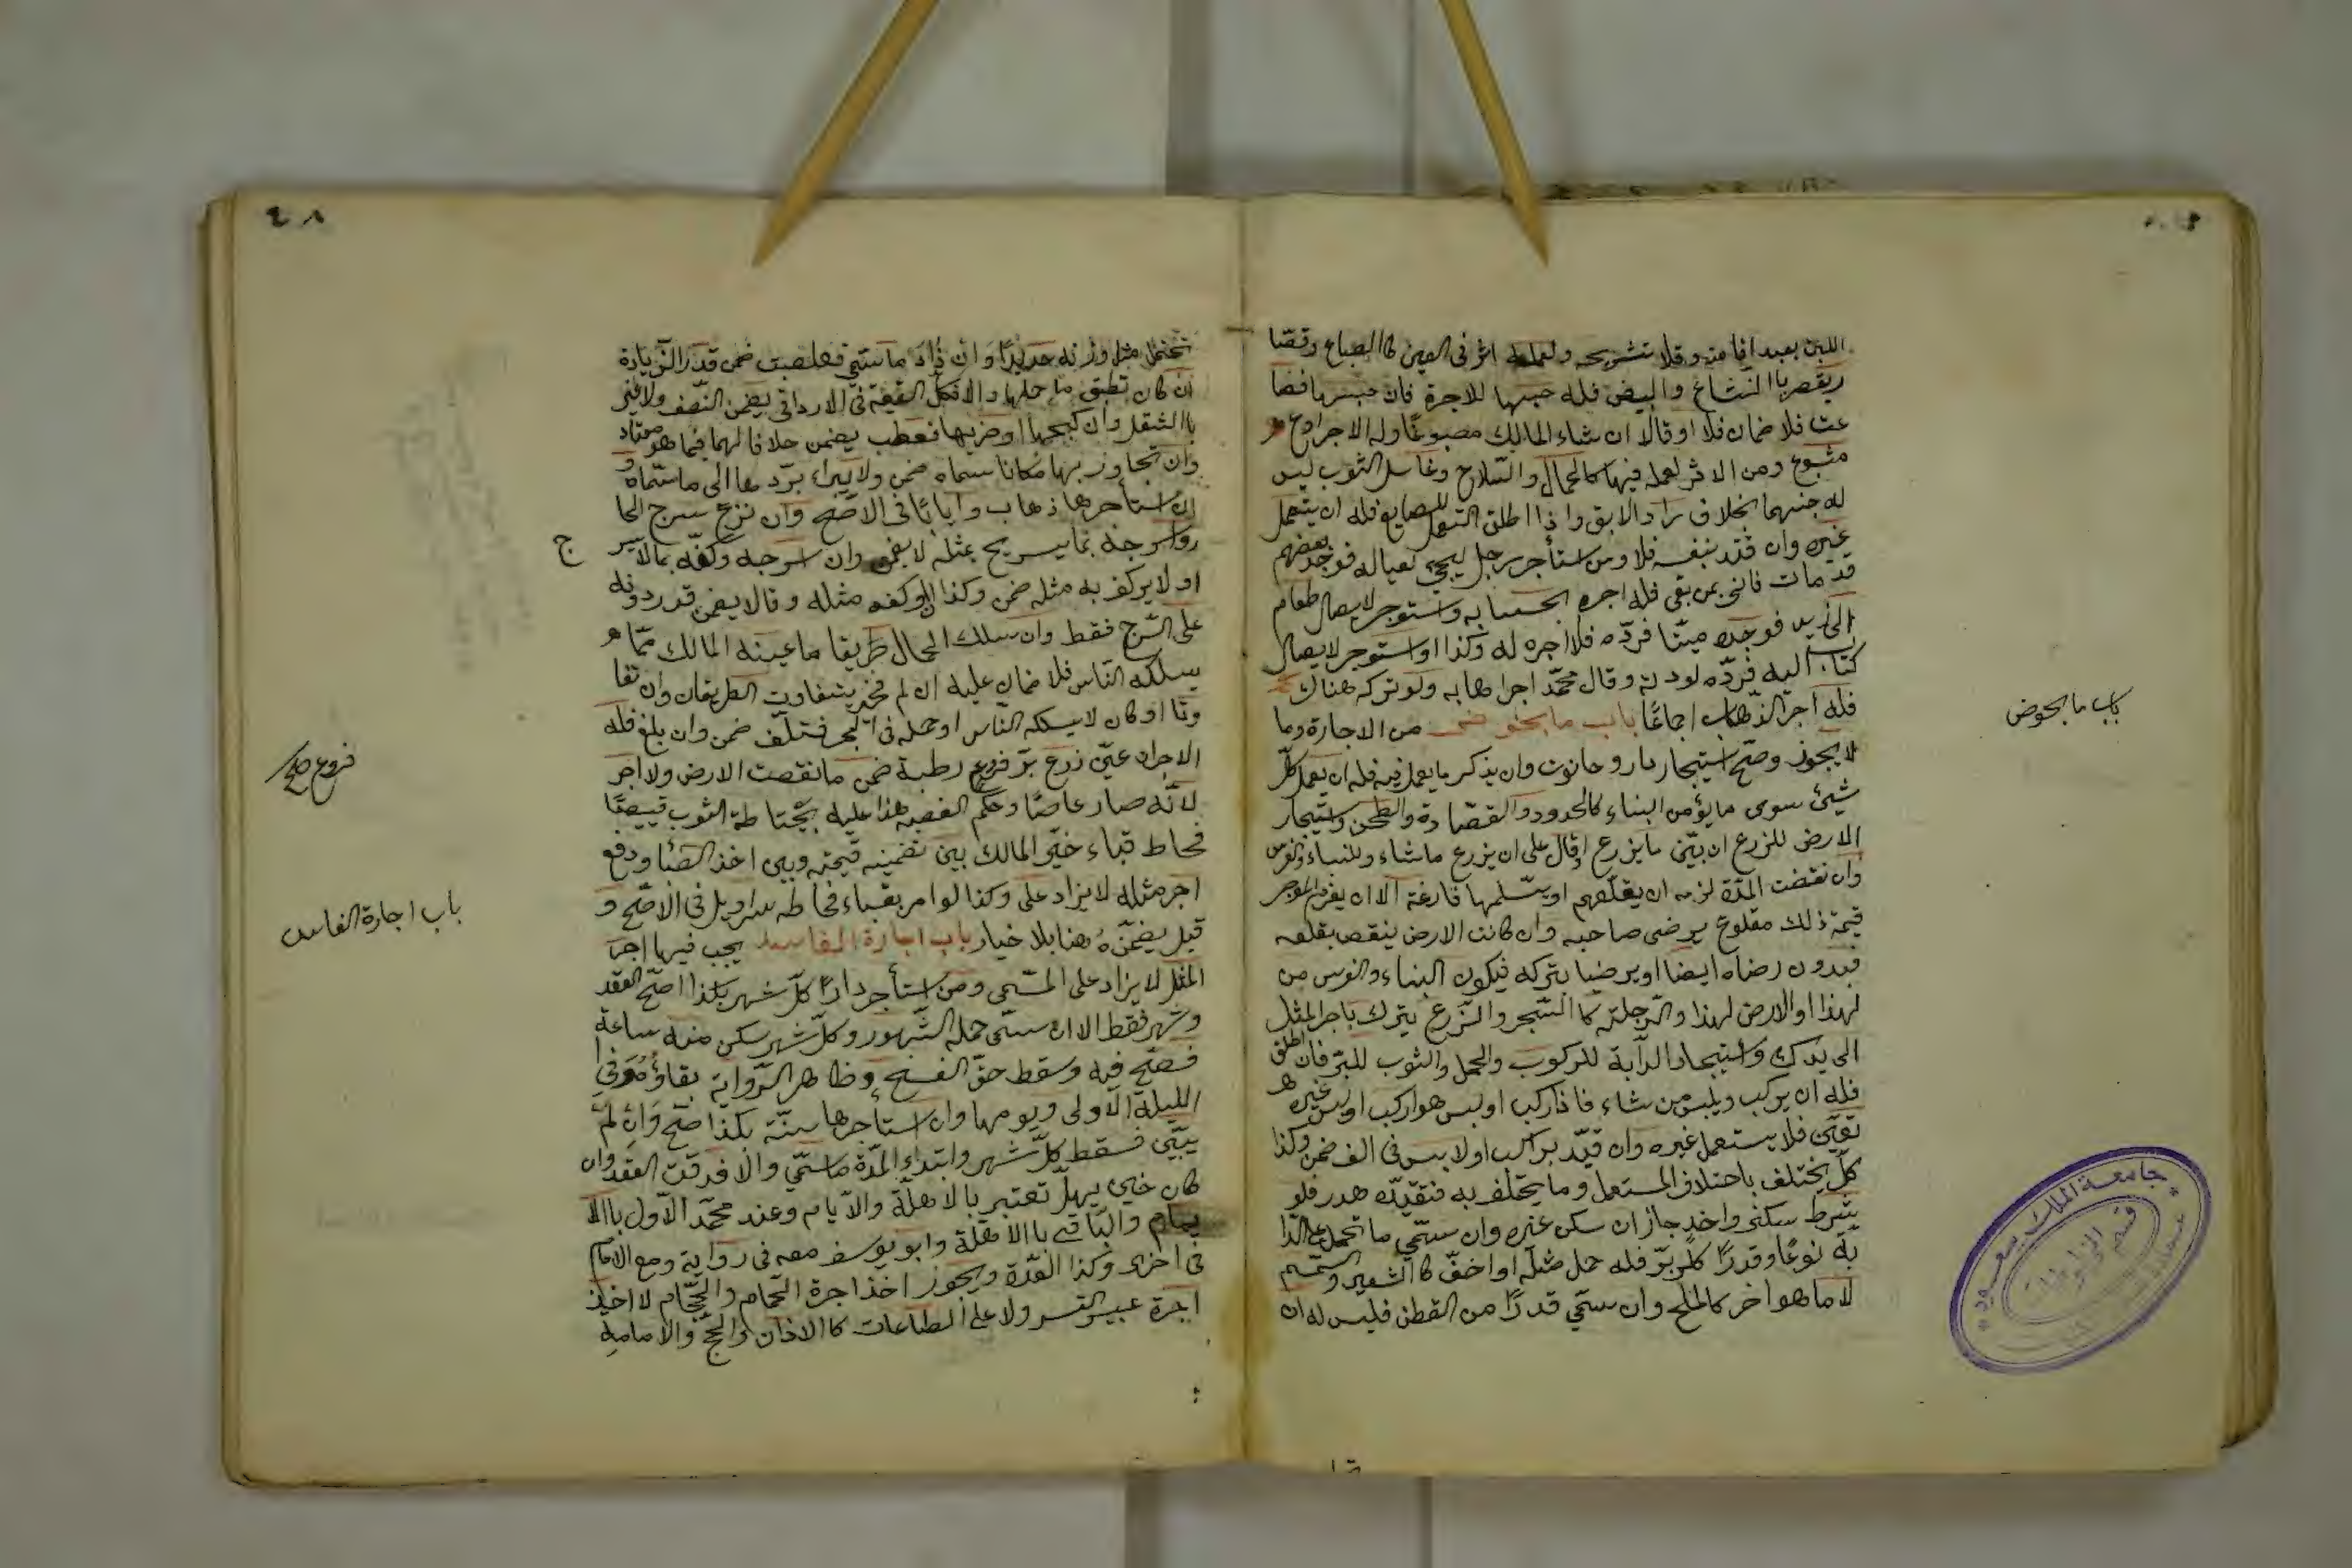 اللبن بعد اقامته وقالا تشريجه ولعمله اثر فى العين كا الصباغ وقصا
ريقصر باالنشاغ والبيض فله حبسها للاجرة فان حبسها فضا
عت فلا ضمان فلا اوقالا ان شاء المالك مصبوغا وله الاجر اوغير
مثبوغ ومن الاثر لعمله فيها كالحمال والسلاح وغاسل الثوب ليس
له حبسها بخلاف راد الابق واذا اطلق العمل للصايغ فله ان يستعمل
غيره وان قيد بنفسه فلا ومن استأجر رجل ليجئ بعياله فوجد بعضهم
قد مات فاتى بمن بقى فله اجره بحسابه ولو استوجر لايصال طعام
الى زيد فوجده ميتا فرده فلا اجره له وكذا لو استوجر لايصال
كتاب اليه فرده لموته وقال محمد اجر ذهابه ولو تركه هناك
فله اجر الذهاب اجماعا باب ما يجوز من الاجارة وما
لا يجوز وصح استيجار دار وحانوت وان يذكر ما يعمل فيه فله ان يعمل كل
شيئ سوى ما يؤمن البناء كالحدود والقصارة والطحن واستيجار
الارض للزرع ان بين ما يزرع او قال على ان يزرع ماشاء وللبناء والغرس
وان نقضت المدة لزمه ان يقلعهم او يسلمها فارغة الا ان يغرم الموجر
قيمة ذلك مقلوع برضى صاحبه وان كانت الارض ينقص بقلعه
فبدون رضاه ايضا او يرضيا بتركه فيكون البناء والغرس من
لهذا او الارض لهذا والرجلة كا الشجر والزرع يترك باجر المثل
الى يدرك واستيجار الدآبة للركوب والحمل والثوب للبس فان اطلق
فله ان يركب ويلبس من شاء فاذا ركب او لبس هو اركب او لبس غيره
تعين فلا يستعمل غيره وان قيد براكب او لابس فى الف ضمن وكذا
كل يختلف باختلاف المستعمل وما يختلف به فتقيده هدر فلو
شرط سكنى واحد جاز ان سكن غيره وان سمى ما تحمل على الدا
بة نوعا وقدرا ككر بر فله حمل مثله او اخف كا الشعير والسمسم
لا ما هو اخر كالملح وان سمى قدرا من القطن فليس له ان
باب ما يجوض
جامعة الملك سعود
تحتمل مثل وزنه حديدا وان زاد ما سمى فعطبت ضمن قدر الزيادة
ان كان تطيق ما حملها والا فكل القيمة فى الارداف يضمن النصف ولا يعتبر
باالثقل وان كبحها او ضربها فعطب يضمن خلافا لهما فيما هو معتاد
وان تجاوز بها مكانا سماه ضمن ولا يبراء بردها الى ما سماه و
ان استأجرها ذهاب وايابا فى الاصح وان نزع سرج الحما
ر واسرجه بما يسرج بمثله لا يضمن وان اسرجه وكفه بما لا يسر
ج
او لا يركف به مثله ضمن وكذا ان اوكفه مثله وقالا يضمن قدر دونه
على السرج فقط وان سلك الحمال طريقا ما عينه المالك مما هو
يسلكه الناس فلا ضمان عليه ان لم يتفاوت الطريقان وان تفا
وتا او كان لا يسلكه الناس او حمله فى البحر فتلف ضمن وان بلغ فله
الاجر ان عين زرع بر فزرع رطبة ضمن ما نقصت الارض ولا اجر
لانه صار غاصبا وحكم الغصب هذا عليه بخياطة الثوب قميصا
فخاط قباء خير المالك بين تضمينه قيمته وبين اخذ القبا ودفع
اجر مثله لا يزاد على وكذا لو امر بقباء فخاطه سراويل فى الاصح و
قيل يضمنه هنا بلا خيار باب اجارة الفاسد يجب فيها اجر
المثل لا يزاد على المسمى ومن استأجر دارا كل شهر بكذا صح العقد
وشهر فقط الا ان سمى جمله الشهور وكل شهر سكن منه ساعة
فصح فيه وسقط حق الفسخ وظاهر الرواية بقاؤه فى
الليلة الاولى ويومها وان استأجرها سنة بكذا صح وان لم
يبين قسط كل شهر وابتداء المدة ما سمى والا فوقت العقد وان
كان حين يهل تعتبر بالاهلة والا يام وعند محمد الاول باالا
يام والباقى باالاهلة وابو يوسف معه فى رواية ومع الامام
فى اخرى وكذا العدة ويجوز اخذ اجرة الحمام والحجام لا اخذ
اجرة عسب التيس ولا على الطاعات كا الاذان والحج والامامة
فروع صح
باب اجارة الفاسد
٤٨